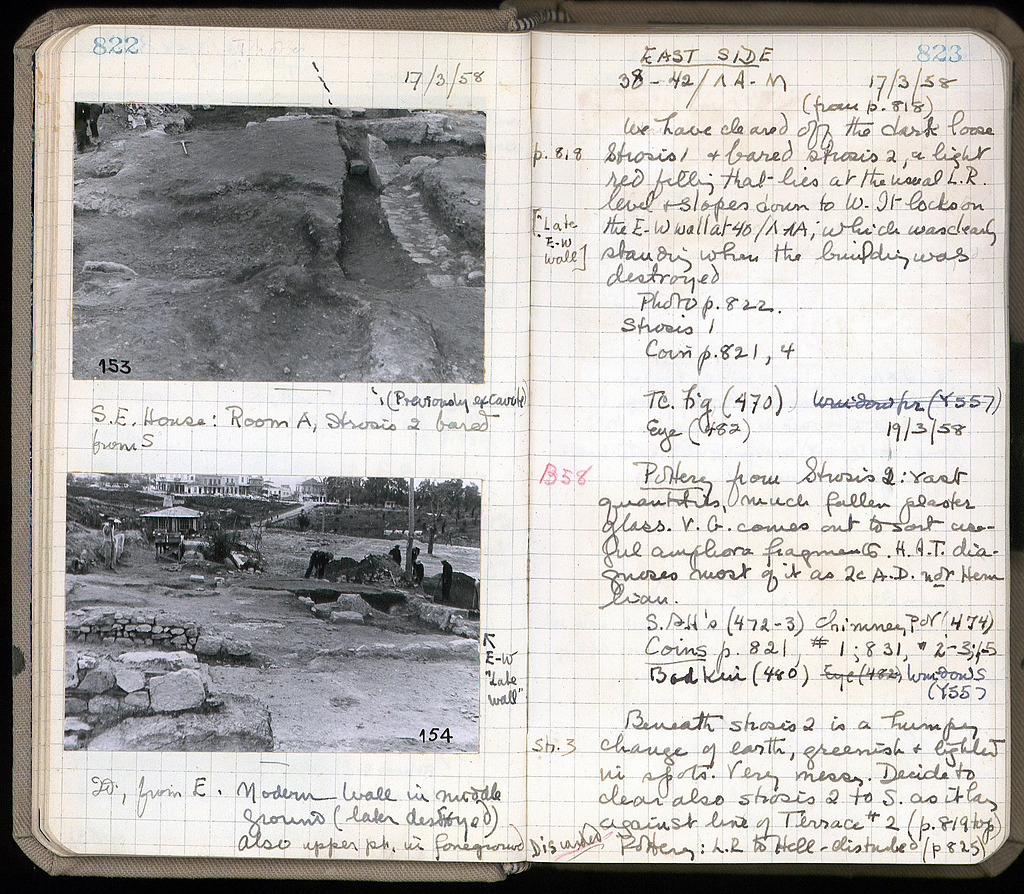 822
17/3/58
153
(Previously excavated)
S.E. House: Room A, Strosis 2 bared
from S
E-W
"Late
wall"
154
Do., from E. Modern wall in middle
ground (later destroyed)
also upper pt. in foreground
EAST SIDE
823
38-42/ΛA-M
17/3/58
(from p. 818)
We have cleared off the dark loose
p. 818
Strosis 1 + bared strosis 2, a light
red filling that lies at the usual L.R.
level + slopes down to W. It locks on
["Late
E-W
wall]
the E-W wall at 40/Λ-ΛA, which was clearly
standing when the building was
destroyed
Photo p. 822.
Strosis 1
Coin p. 821, 4
Tc. fig (470) (Y557)
Eye (482) 19/3/58
B58
Pottery from Strosis 2: vast
quantities, much fallen plaster
glass. V.G. comes out to sort use-
ful amphora fragments. H.A.T. dia-
gnoses most of it as 2c A.D. not Heru
lian.
(472-3) Chimney Pot (474)
Coins p. 821, # 1: 831, # 2-3;
Bodkin (480) Eye (482) Windows
(Y557)
Beneath strosis 2 is a humpy
Str. 3
change of earth, greenish + lighted
in spots. Very messy. Decide to
clear also strosis 2 to S. as it lay
against line of Terrace # 2 (p. 819 top)
Discarded
Pottery: L.R. to Hell - disturbed (p 825)